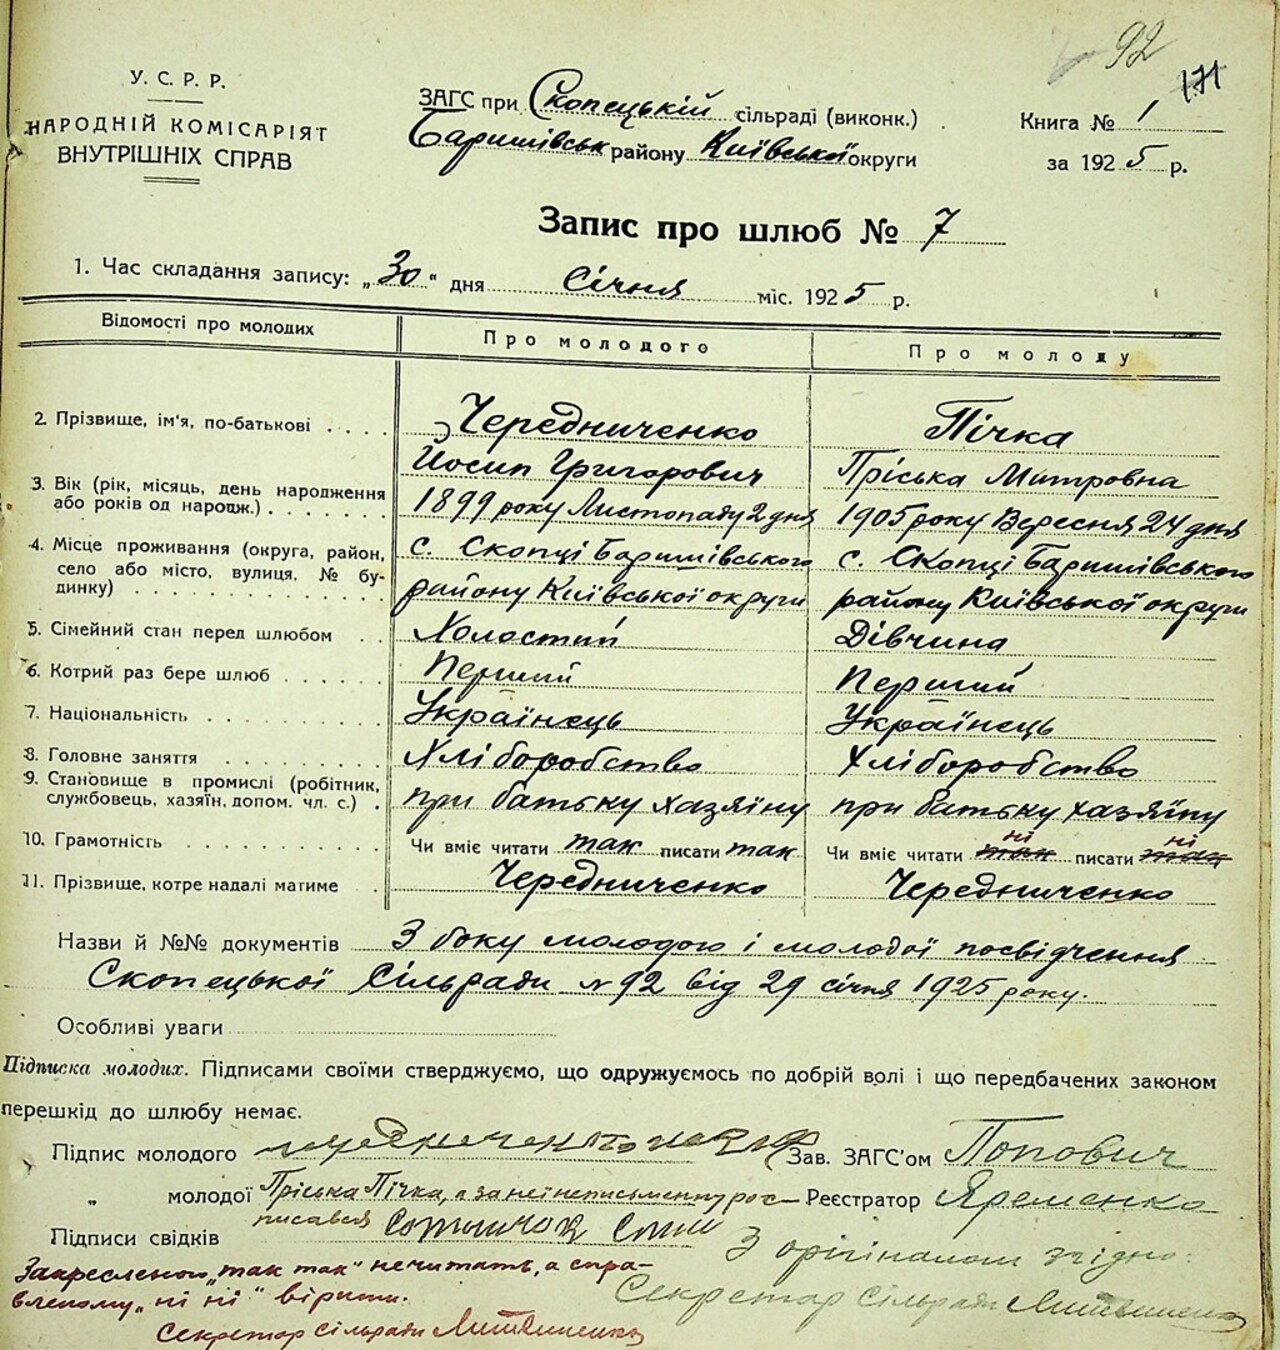 92
171
У. С. Р. Р.
НАРОДНІЙ КОМІСАРІЯТ
ВНУТРІШНІХ СПРАВ
ЗАГС при Скопецькій сільраді (виконк.)
Баришівськ району Київської округи
Книга № 1
за 1925 р.
Запис про шлюб № 7
1. Час складання запису: „30“ дня Січня міс. 1925 р.
Відомості про молодих
Про молодого
Про молоду
2. Прізвище, ім'я, по-батькові
Чередниченко
Йосип Григорович
Пічка
Пріська Митровна
3. Вік (рік, місяць, день народження
або років од нарождж.)
1899 року Листопаду 2 дня
1905 року Вересня 24 дня
4. Місце проживання (округа, район,
село або місто, вулиця, № бу-
динку)
с. Скопці Баришівського
району Київської округи
с. Скопці Баришівського
району Київської округи
5. Сімейний стан перед шлюбом
Холостий
Дівчина
6. Котрий раз бере шлюб
Перший
Перший
7. Національність
Українець
Українець
8. Головне заняття
Хліборобство
Хліборобство
9. Становище в промислі (робітник,
службовець, хазяїн, допом. чл. с.)
при батьку хазяїну
при батьку хазяїну
10. Грамотність
Чи вміє читати так писати так
ні ні
Чи вміє читати так писати так
11. Прізвище, котре надалі матиме
Чередниченко
Чередниченко
Назви й №№ документів З боку молодого і молодої посвідчення
Скопецької Сільради №92 від 29 січня 1925 року.
Особливі уваги
Підписка молодих. Підписами своїми стверджуємо, що одружуємось по добрій волі і що передбачених законом
перешкід до шлюбу немає.
Підпис молодого
Зав. ЗАГС'ом Попович
„ молодої Пріська Пічка, а за неї неписьменну рос-
писався
Реєстратор Яременко
Підписи свідків
З оригіналом згідно:
Секретар Сільради Литвиненко
Закресленому „так так“ не читать, а спра-
вленому „ні ні“ вірити.
Секретар Сільради Литвиненко